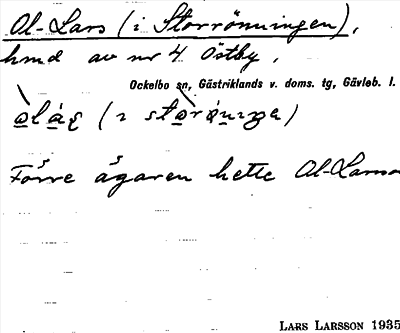 Ol-Lars (i Storrönningen),
hmd av nr 4 Östby,
Ockelbo sn, Gästriklands v. doms. tg, Gävleb. l.
Förre ägaren hette Ol-Larsa
LARS LARSSON 1935